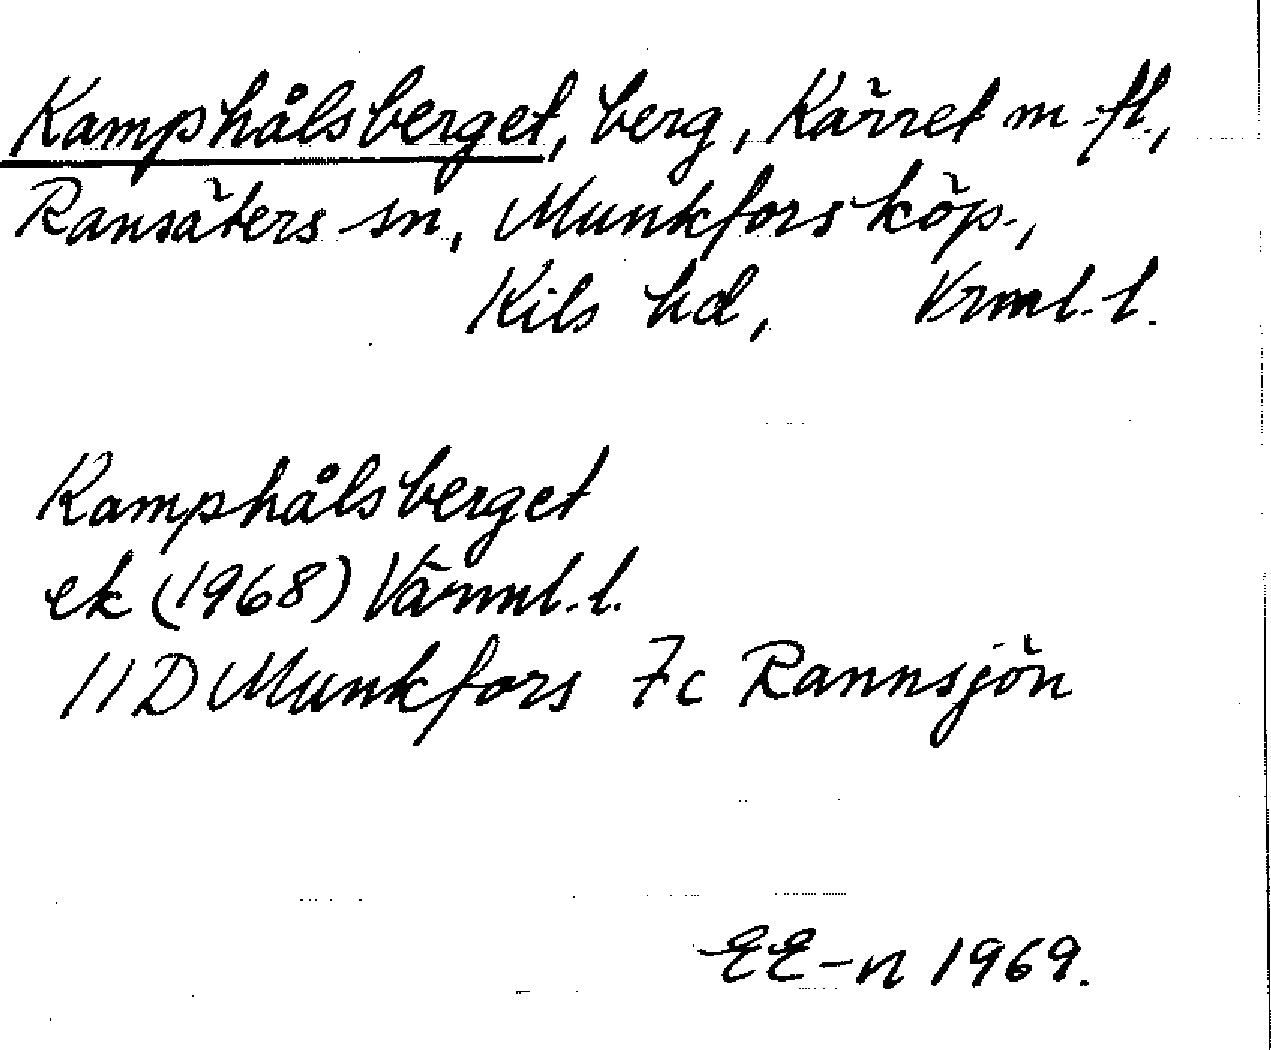 Kamphålsberget, berg, Kärret m fl.,
Ransäters sn, Munkfors köp.,
Kils hd, Vrml. l.
Kamphålsberget
ek (1968) Värml. l.
11 D Munkfors 7c Rannsjön
EE-n 1969.